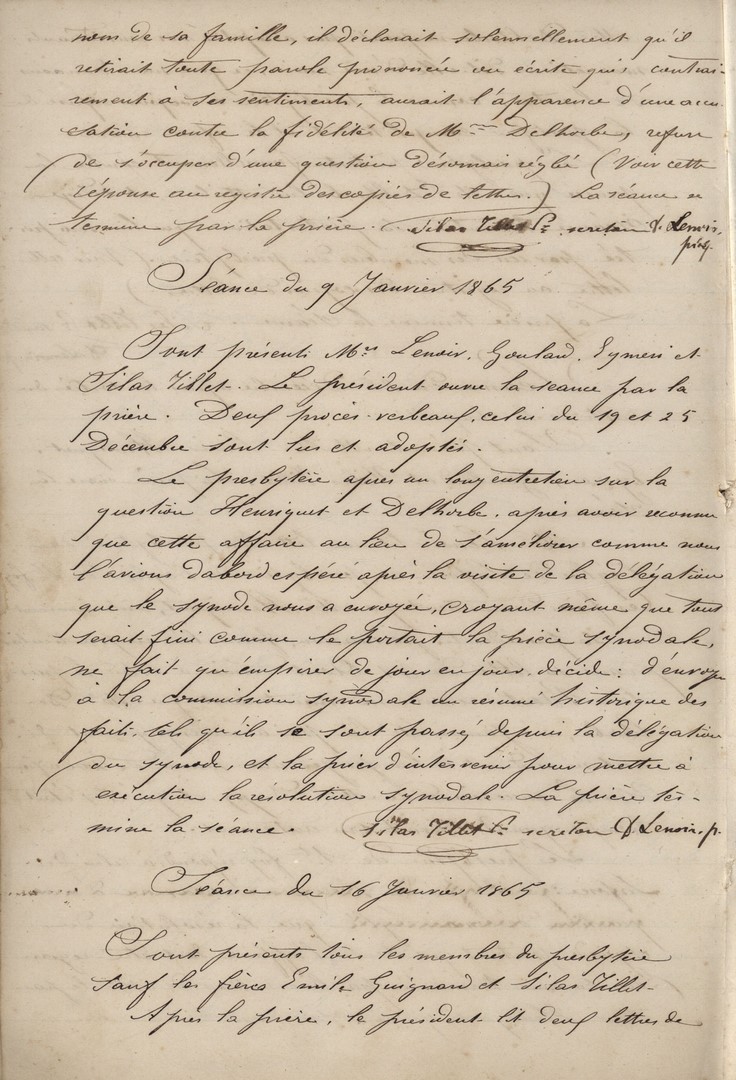 nom de sa famille, il déclarait solennellement qu'il
retirait toute parole prononcée ou écrite qui, contrai-
rement à ses sentiments, aurait l'apparence d'une accu
sation contre la fidélité de Mr Delhorbe, refuse
de s'occuper d'une question désormais réglé (Voir cette
réponse au registre des copies de lettres.) La séance se
termine par la prière. Silas Tillet secrétaire D. Lenoir,
prés.
Séance du 9 Janvier 1865
Sont présents Mrs Lenoir, Goulard, Eymeri et
Silas Tillet. Le président ouvre la séance par la
prière. Deux procès-verbeaux, celui du 19 et 25
Décembre sont lus et adoptés.
Le presbytère après un long entretien sur la
question Henriquet et Delhorbe, après avoir reconnu
que cette affaire au lieu de s'améliorer comme nous
l'avions d'abord espéré après la visite de la délégation
que le synode nous a envoyée, croyant même que tout
serait fini comme le portait la pièce synodale,
ne fait qu'empirer de jour en jour, décide: d'envoyer
à la commission synodale un résumé historique des
faits, tels qu'ils se sont passés depuis la délégation
du synode, et la prier d'intervenir pour mettre à
exécution la résolution synodale. La prière ter-
mine la séance. Silas Tillet secrétaire D. Lenoir, p.
Séance du 16 Janvier 1865
Sont présents tous les membres du presbytère
sauf les frères Emile Guignard et Silas Tillet
Après la prière, le président lit deux lettres de